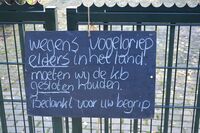 wegens vogelgriep
elders in het land
moeten wij de kb
gesloten houden.
Bedankt voor uw begrip